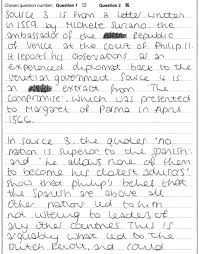 Chosen question number: Question 1 Question 2
Source 3 is from a letter written
in 1559 by Michele Suriano, the
ambassador of the Republic
of Venice at the court of Philip II.
It reports his observations as an
experienced diplomat back to the
Venetian government. Source 4 is
an extract from 'The
Compromise', which was presented
to Margaret of Parma in April
1566.
In source 3, the quotes "no
nation is superior to the Spanish"
and "he allows none of them
to become his closest advisors"
show that Philip's belief that
the Spanish are above all
other nations led to him
not listening to leaders of
any other countries. This is
arguably what led to the
Dutch Revolt, and could